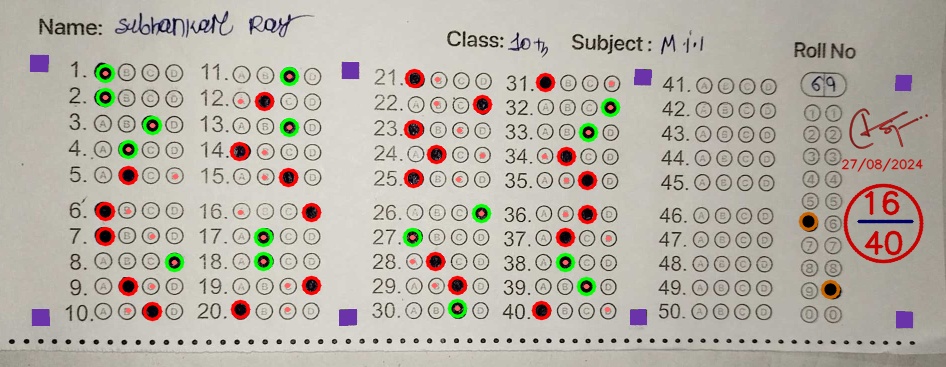 Name: Subhankar Ray
Class: 10th Subject: M.i.l
Roll No
69
1. A B C D
2. A B C D
3. A B C D
4. A B C D
5. A B C D
6. A B C D
7. A B C D
8. A B C D
9. A B C D
10. A B C D
11. A B C D
12. A B C D
13. A B C D
14. A B C D
15. A B C D
16. A B C D
17. A B C D
18. A B C D
19. A B C D
20. A B C D
21. A B C D
22. A B C D
23. A B C D
24. A B C D
25. A B C D
26. A B C D
27. A B C D
28. A B C D
29. A B C D
30. A B C D
31. A B C D
32. A B C D
33. A B C D
34. A B C D
35. A B C D
36. A B C D
37. A B C D
38. A B C D
39. A B C D
40. A B C D
41. A B C D
42. A B C D
43. A B C D
44. A B C D
45. A B C D
46. A B C D
47. A B C D
48. A B C D
49. A B C D
50. A B C D
1 1
2 2
3 3
4 4
5 5
6
7 7
8 8
9
0 0
27/08/2024
16
40